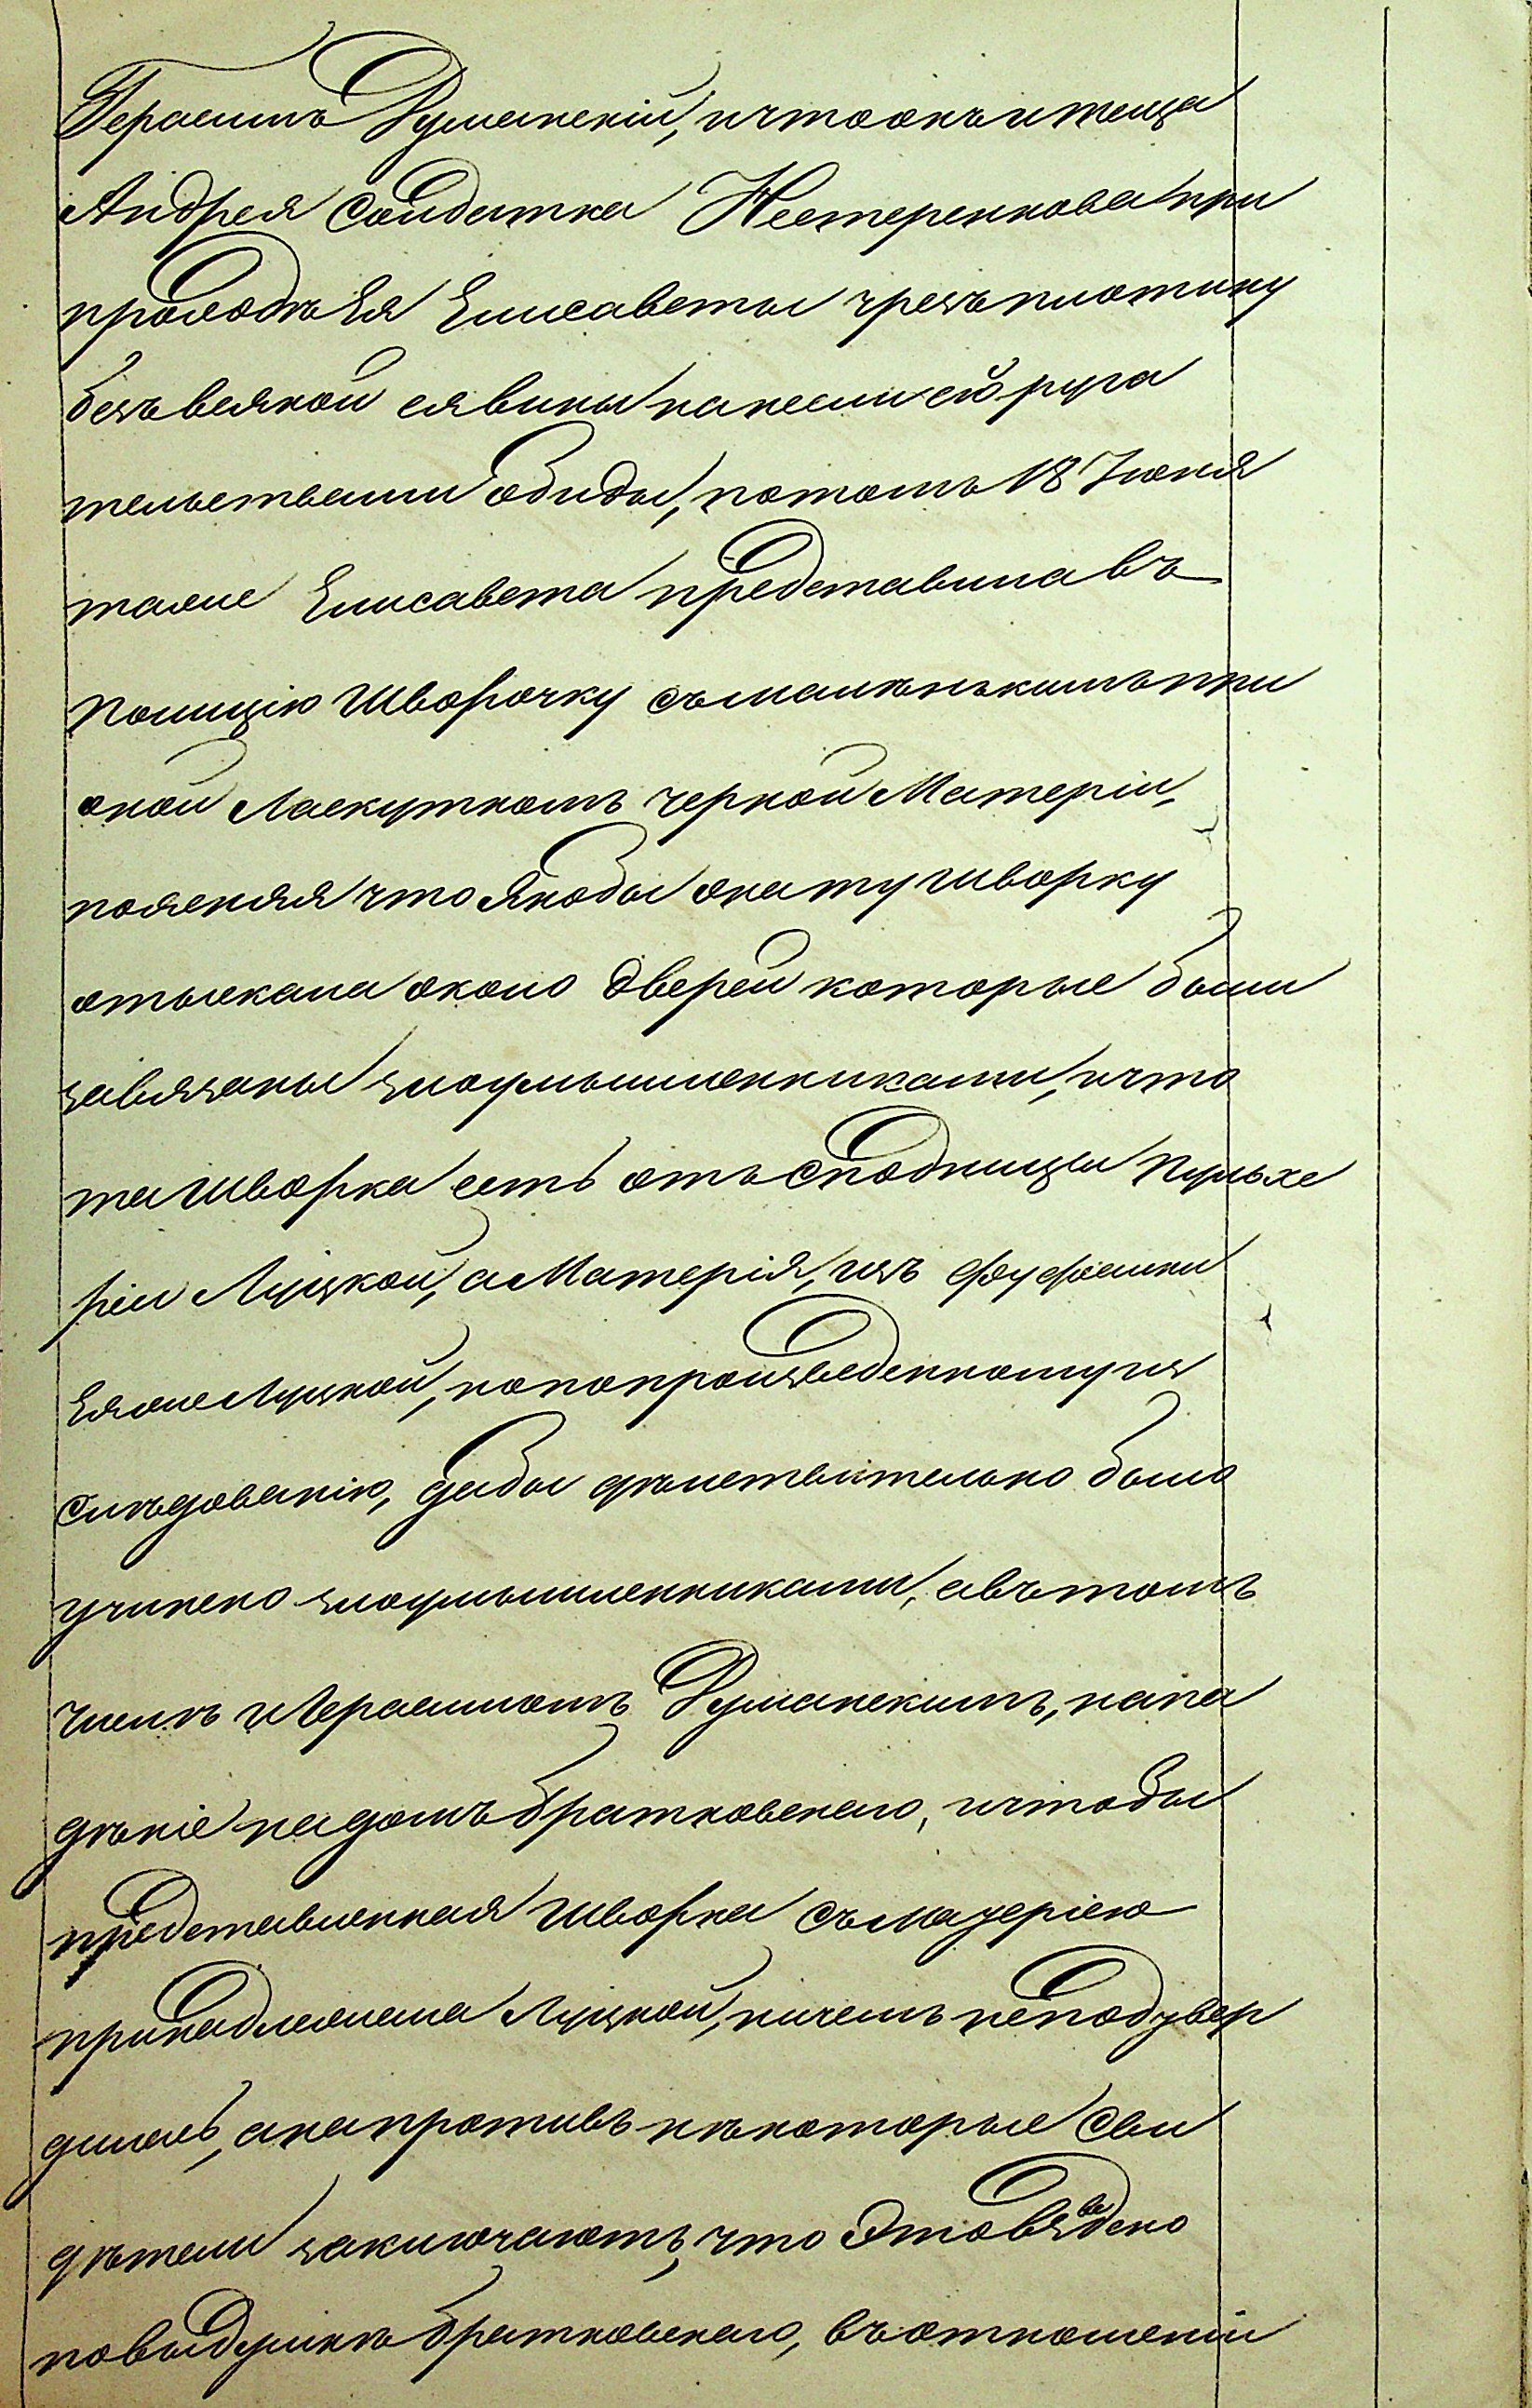 Герасимъ Руманскій, и что онъ и теща
Андрея Солдатка Нестеренкова при
проходѣ Ея Елисаветы чрезъ плотину
безъ всякой ея вины нанесли ей руга
тельствами обиды, потомъ 18 Іюня
таже Елисавета представила въ
Полицію Шворочку съ маленькимъ при
оной Лоскуткомъ черной Матеріи,
поясняя что якобы она ту шворку
отыскала около дверей которые были
завязаны злоумышленниками, и что
та шворка есть отъ сподницы Пульхе
ріи Луцкой, а Матерія, изъ фуфайки
Ея же Луцкой, но по произведенному из
слѣдованію, дабы дѣйствительно было
учинено злоумышленниками, а въ томъ
числѣ и Герасимомъ Руманскимъ, напа
дѣніе на домъ Братковскаго, и чтобы
представленная шворка съ матеріею
принадлежала Луцкой, ничемъ неподтвер
дилось, а напротивъ нѣкоторые сви
дѣтели заключаютъ, что это взведено
по выдумкѣ Братковскаго, въ отношеніи